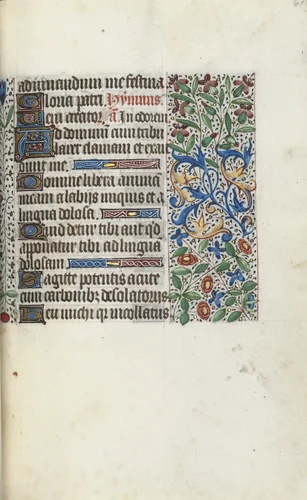 ad adiuuandum me festina
Gloria patri. Hymnus.
Ueni creator. a In odorem
Ad dominum cum tribu
larer clamaui et exau
diuit me.
Domine libera animam
meam a labijs iniquis et a
lingua dolosa.
Quid detur tibi aut q̄d
apponatur tibi ad linguā
dolosam.
Sagitte potentis acute
cum carbonibz desolatorijs
Heu michi qr incolatus